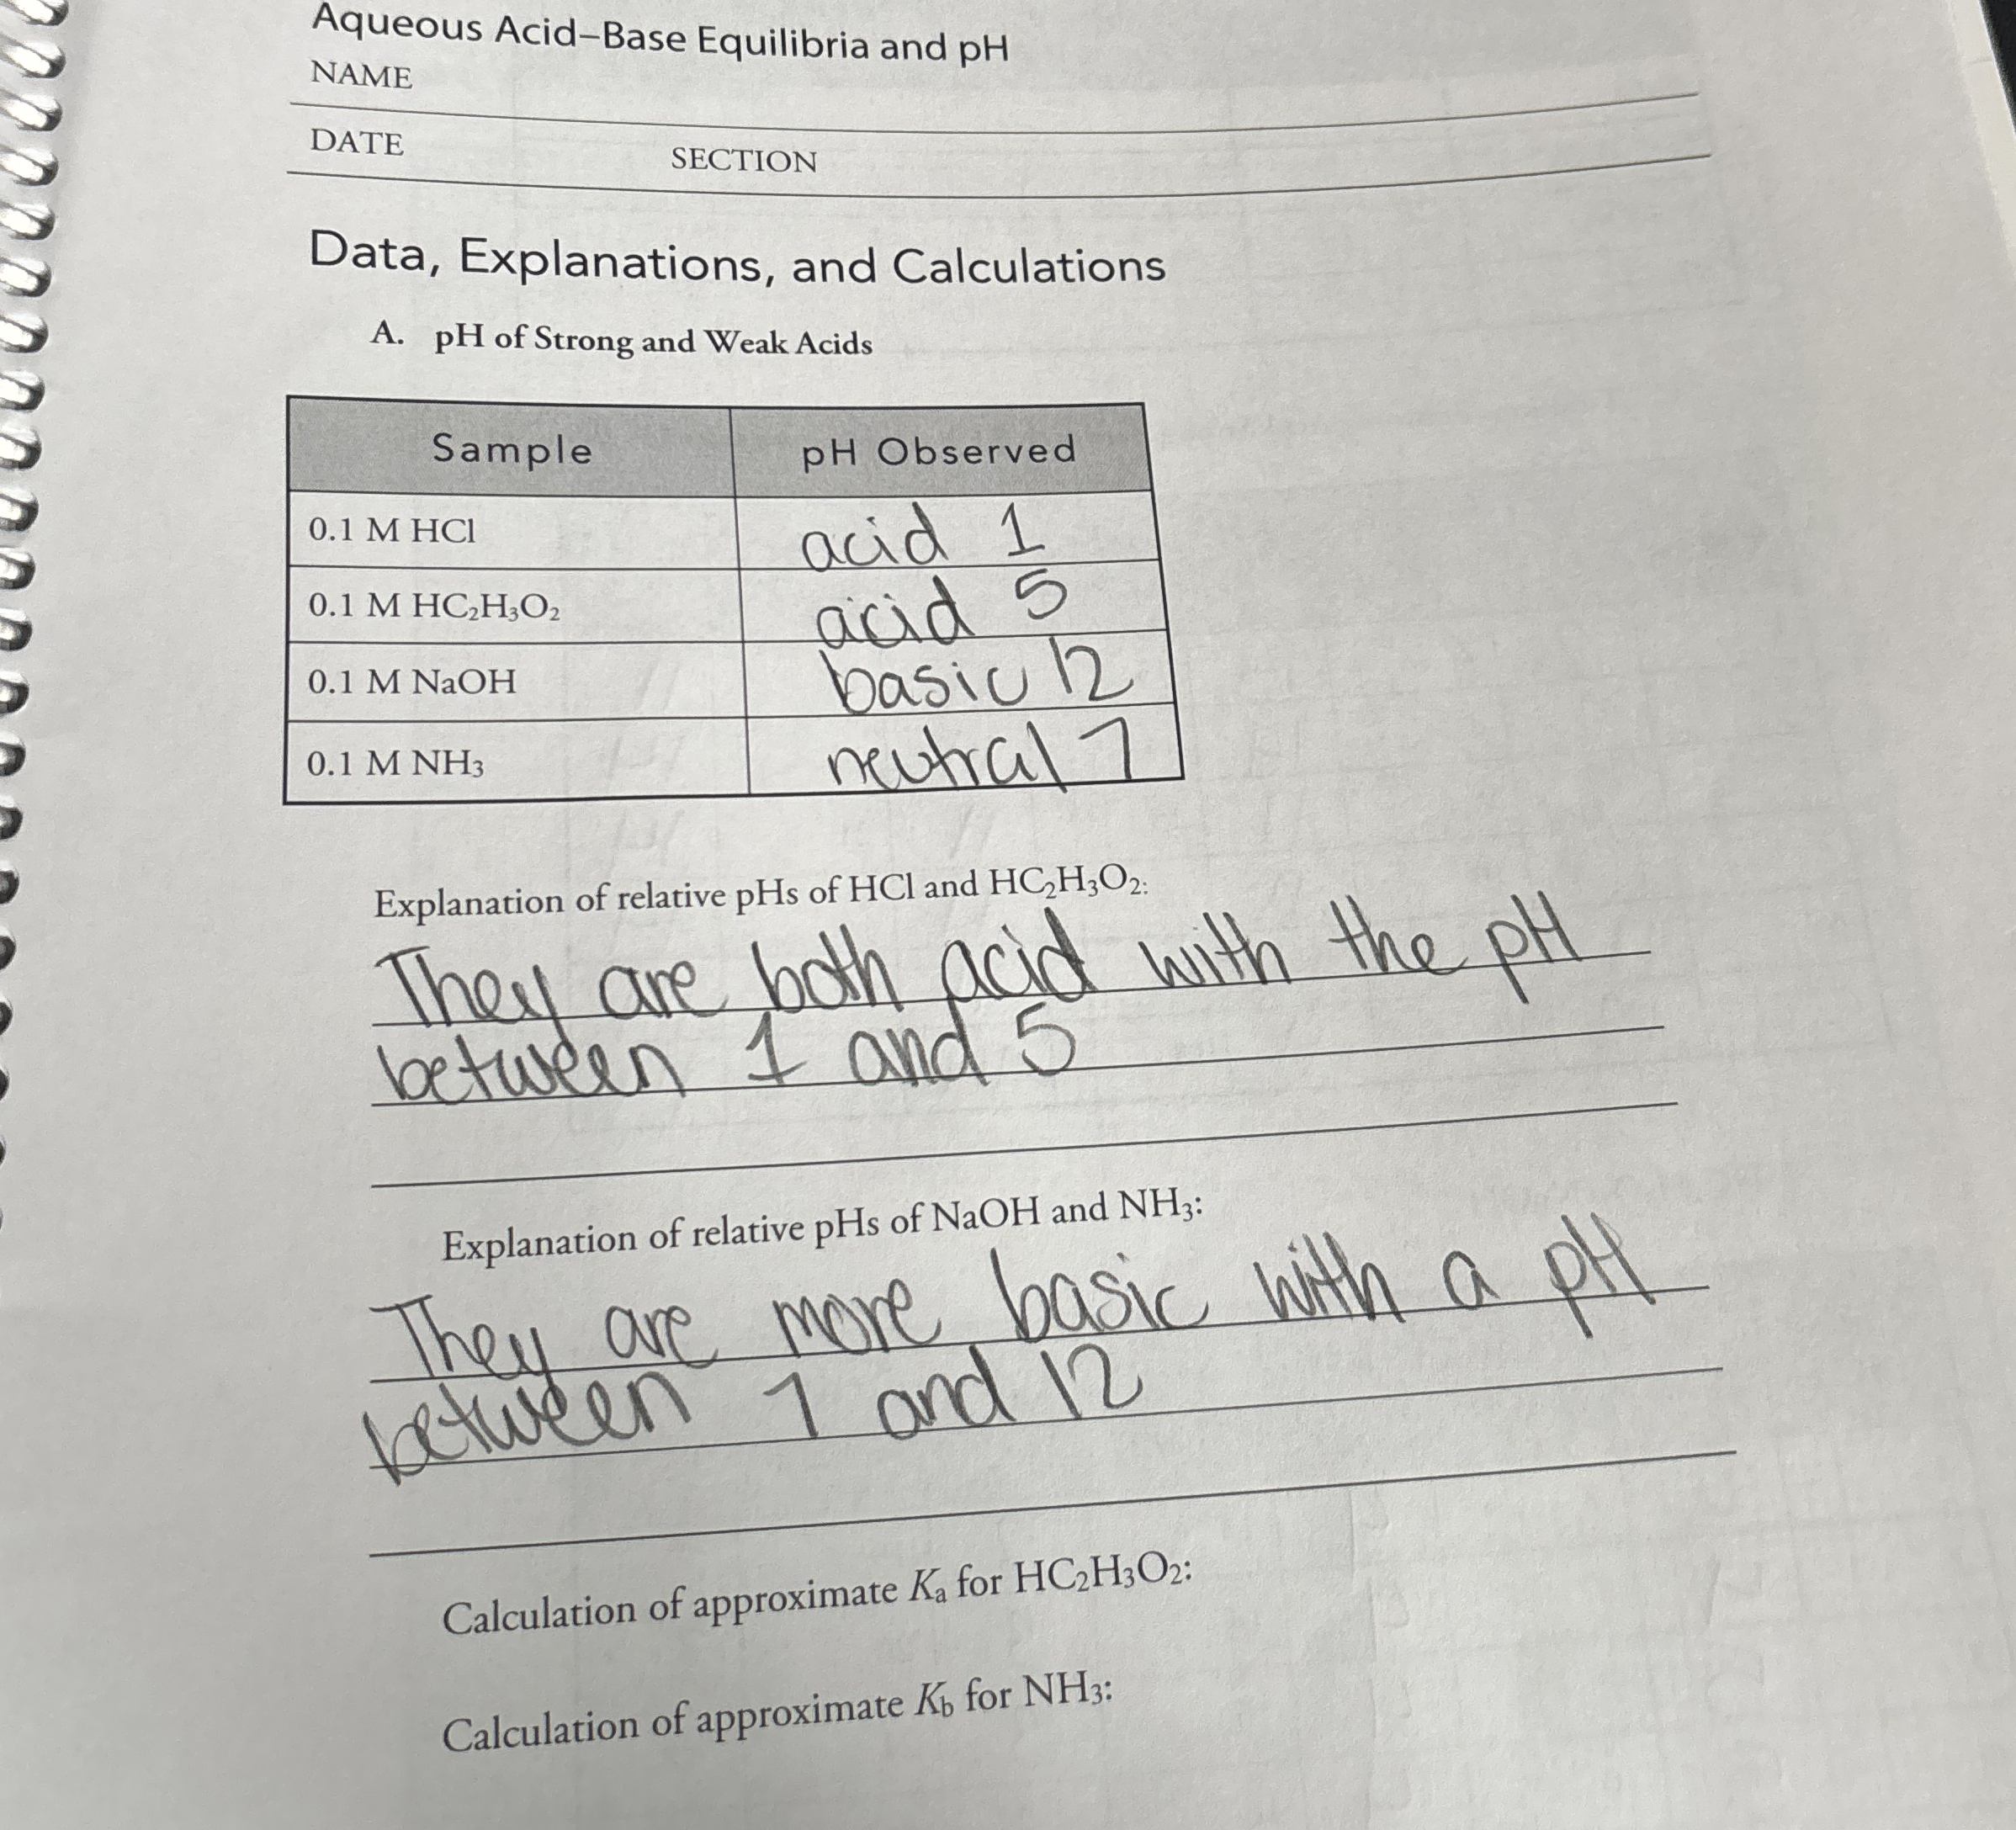 Aqueous Acid–Base Equilibria and pH
NAME
DATE SECTION
Data, Explanations, and Calculations
A. pH of Strong and Weak Acids
Sample pH Observed
0.1 M HCl acid 1
0.1 M HC₂H₃O₂ acid 5
0.1 M NaOH basic 12
0.1 M NH₃ neutral 7
Explanation of relative pHs of HCl and HC₂H₃O₂:
They are both acid with the pH
between 1 and 5
Explanation of relative pHs of NaOH and NH₃:
They are more basic with a pH
between 7 and 12
Calculation of approximate Kₐ for HC₂H₃O₂:
Calculation of approximate K_b for NH₃: